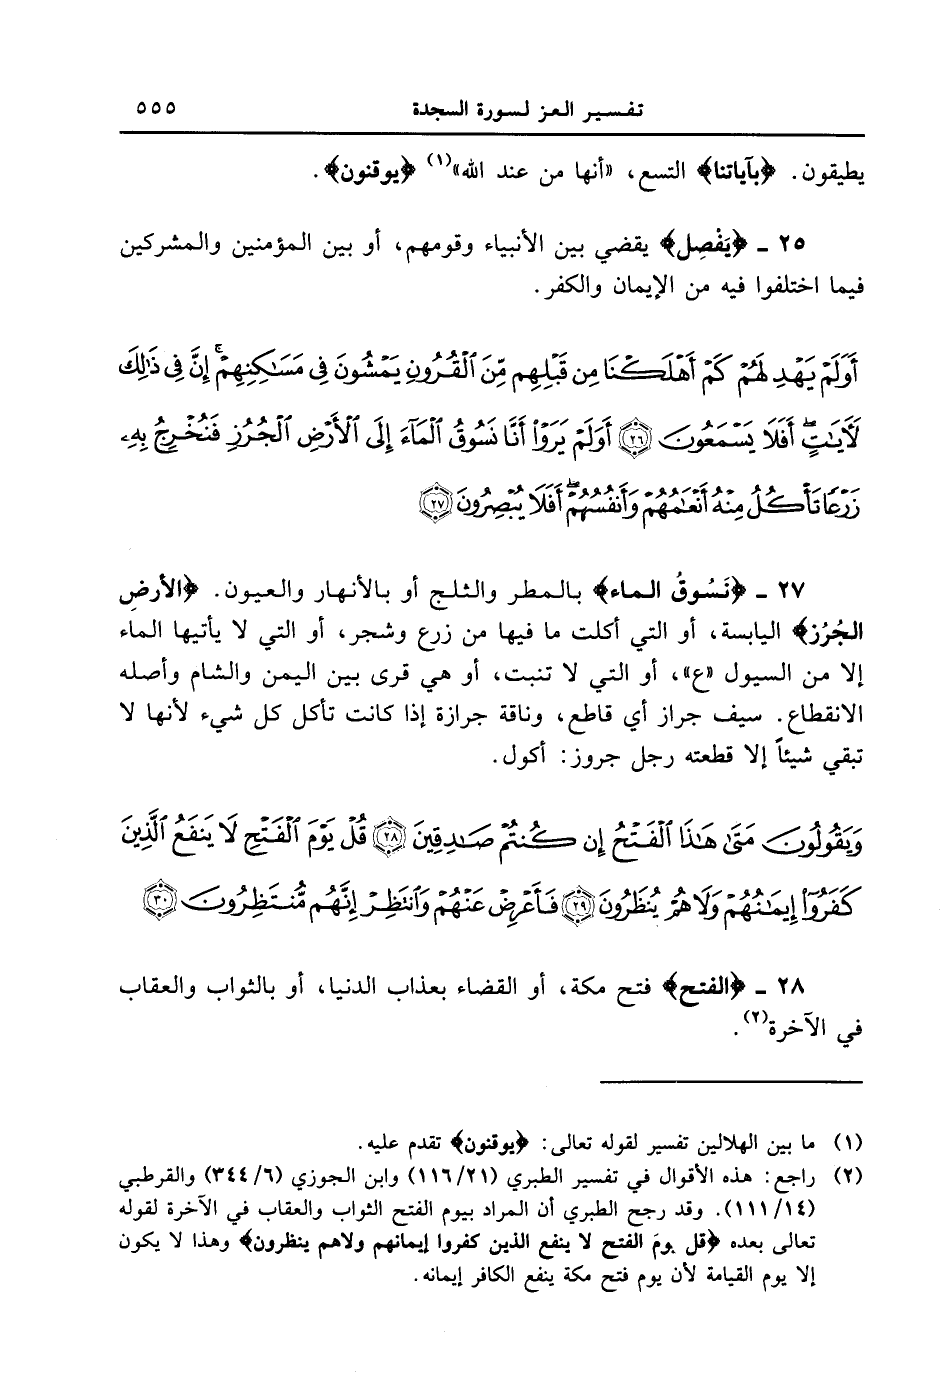 تفسير العز لسورة السجدة ٥٥٥
يطيقون. ﴿بآياتنا﴾ التسع، «أنها من عند الله»(١) ﴿يوقنون﴾.
٢٥ ـ ﴿يَفْصِل﴾ يقضي بين الأنبياء وقومهم، أو بين المؤمنين والمشركين
فيما اختلفوا فيه من الإيمان والكفر.
أَوَلَمْ يَهْدِ لَهُمْ كَمْ أَهْلَكْنَا مِن قَبْلِهِم مِّنَ ٱلْقُرُونِ يَمْشُونَ فِى مَسَـٰكِنِهِمْ ۚ إِنَّ فِى ذَٰلِكَ
لَـَٔايَـٰتٍ ۖ أَفَلَا يَسْمَعُونَ ٢٦ أَوَلَمْ يَرَوْا۟ أَنَّا نَسُوقُ ٱلْمَآءَ إِلَى ٱلْأَرْضِ ٱلْجُرُزِ فَنُخْرِجُ بِهِۦ
زَرْعًا تَأْكُلُ مِنْهُ أَنْعَـٰمُهُمْ وَأَنفُسُهُمْ ۖ أَفَلَا يُبْصِرُونَ ٢٧
٢٧ ـ ﴿نَسُوقُ الماء﴾ بالمطر والثلج أو بالأنهار والعيون. ﴿الأرضِ
الجُرُز﴾ اليابسة، أو التي أكلت ما فيها من زرع وشجر، أو التي لا يأتيها الماء
إلا من السيول «ع»، أو التي لا تنبت، أو هي قرى بين اليمن والشام وأصله
الانقطاع. سيف جراز أي قاطع، وناقة جرازة إذا كانت تأكل كل شيء لأنها لا
تبقي شيئاً إلا قطعته رجل جروز: أكول.
وَيَقُولُونَ مَتَىٰ هَـٰذَا ٱلْفَتْحُ إِن كُنتُمْ صَـٰدِقِينَ ٢٨ قُلْ يَوْمَ ٱلْفَتْحِ لَا يَنفَعُ ٱلَّذِينَ
كَفَرُوٓا۟ إِيمَـٰنُهُمْ وَلَا هُمْ يُنظَرُونَ ٢٩ فَأَعْرِضْ عَنْهُمْ وَٱنتَظِرْ إِنَّهُم مُّنتَظِرُونَ ٣٠
٢٨ ـ ﴿الفتح﴾ فتح مكة، أو القضاء بعذاب الدنيا، أو بالثواب والعقاب
في الآخرة(٢).
(١) ما بين الهلالين تفسير لقوله تعالى: ﴿يوقنون﴾ تقدم عليه.
(٢) راجع: هذه الأقوال في تفسير الطبري (١١٦/٢١) وابن الجوزي (٣٤٤/٦) والقرطبي
(١١١/١٤). وقد رجح الطبري أن المراد بيوم الفتح الثواب والعقاب في الآخرة لقوله
تعالى بعده ﴿قل يومَ الفتح لا ينفع الذين كفروا إيمانهم ولاهم ينظرون﴾ وهذا لا يكون
إلا يوم القيامة لأن يوم فتح مكة ينفع الكافر إيمانه.